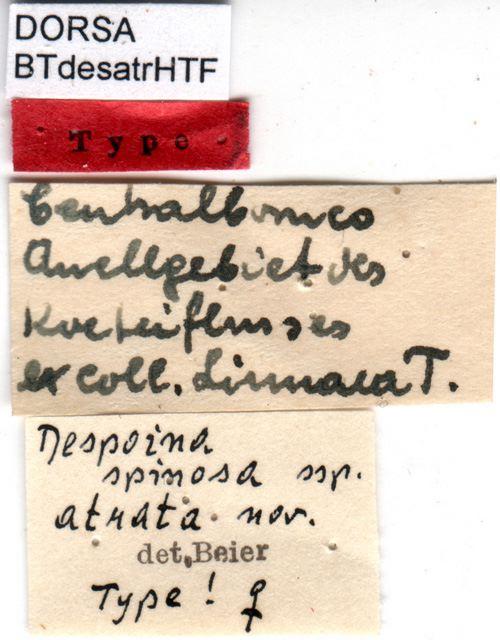 DORSA
BTdesatrHTF
Type
Centralborneo
Quellgebiet des
Kuteiflusses
ex coll. Linnaea T.
Despoina
spinosa ssp.
atrata nov.
det. Beier
Type! ♀